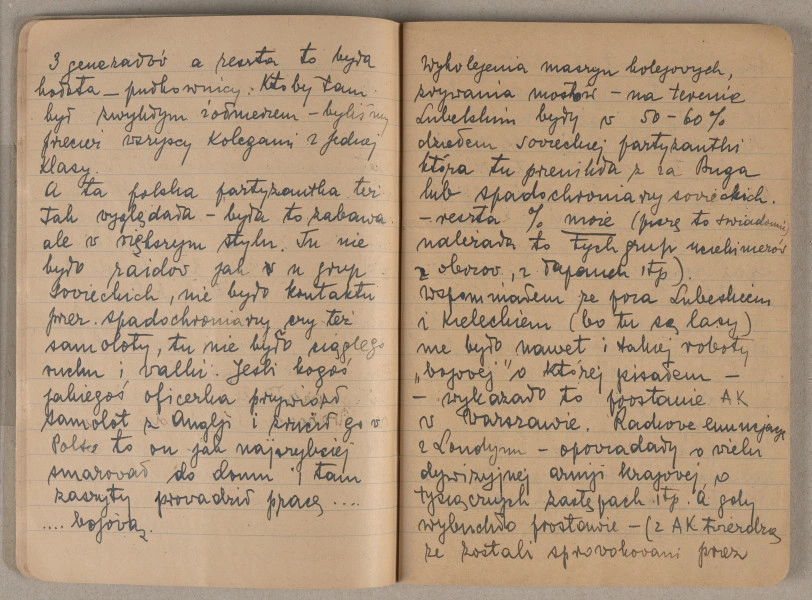 3 generałów a reszta to była
hołota – pułkownicy. Ktoby tam
był zwykłym żołnierzem – byliśmy
przecież wszyscy kolegami z jednej
klasy.
A ta polska partyzantka też
tak wyglądała – była to zabawa
ale w większym stylu. Tu nie
było raidów jak w u grup
sovieckich, nie było kontaktu
przez spadochroniarzy, czy też
samoloty, tu nie było ciągłego
ruchu i walki. Jeśli kogoś
jakiegoś oficerka przywiózł
samolot z Anglji i zrzucił go w
Polsce to on jak najszybciej
smarował do domu i tam
zaszyty prowadził pracę ....
.... bojową.
Wykolejenia maszyn kolejowych,
zrywania mostów – na terenie
Lubelskim były w 50–60%
dziełem sovieckiej partyzantki
która tu przenikła z za Buga
lub spadochroniarzy sovieckich.
– reszta % może (piszę to świadomie)
należała to tych grup uciekinierów
z obozov, z łapanek itp).
Wspominałem że poza Lubelskiem
i Kieleckiem (bo tu są lasy)
nie było nawet i takiej roboty
„bojovej" o której pisałem –
– wykazało to powstanie AK
w Warszawie. Radiowe
z Londynu – opowiadały o wielu
dywizyjnej armji krajovej, o
tysiącznych zastępach itp. A gdy
wybuchło powstanie – (z AK twierdzą
że zostali sprovokowani przez